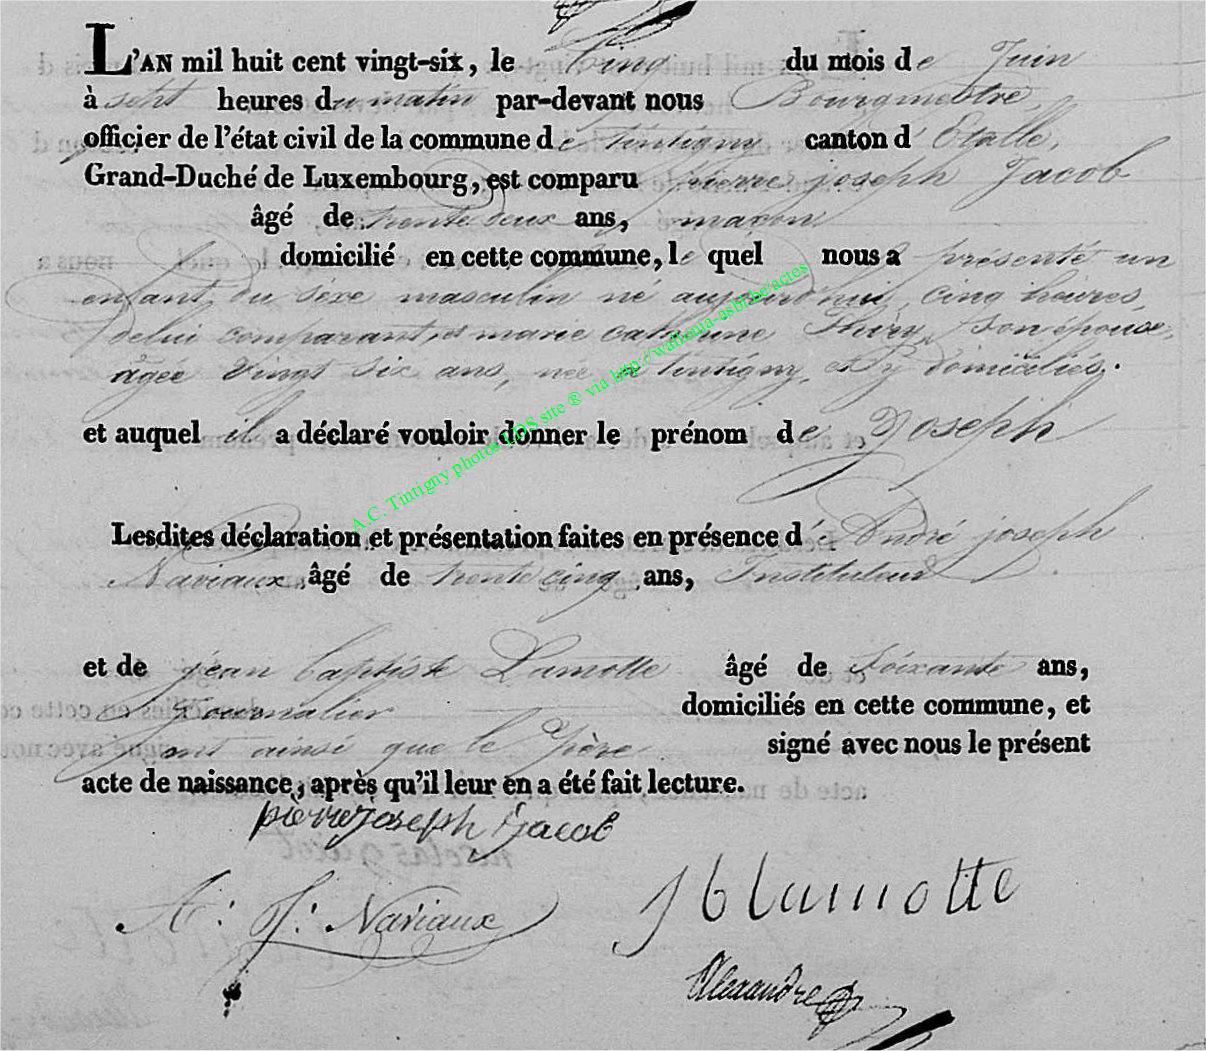 L'AN mil huit cent vingt-six, le Cinq du mois de Juin
à sept heures du matin par-devant nous Bourgmestre,
officier de l'état civil de la commune de Tintigny canton d'Etalle,
Grand-Duché de Luxembourg, est comparu Pierre joseph Jacob
âgé de trente deux ans, maçon
domicilié en cette commune, le quel nous a présenté un
enfant du sèxe masculin né aujourd'hui cinq heures
de lui comparant, et marie catherine Thiry, son épouse,
agée vingt six ans, née à tintigny, et y domiciliés.
et auquel il a déclaré vouloir donner le prénom de Joseph
Lesdites déclaration et présentation faites en présence d'André joseph
Naviaux âgé de trente cinq ans, Instituteur
et de jean baptiste Lamotte âgé de Soixante ans,
Journalier domiciliés en cette commune, et
ont ainsi que le père signé avec nous le présent
acte de naissance, après qu'il leur en a été fait lecture.
pierre joseph jacob
A: J: Naviaux
J b lamotte
Alexandre
A.C. Tintigny photos LDS site ® via http://wallonia-asbl.be/actes